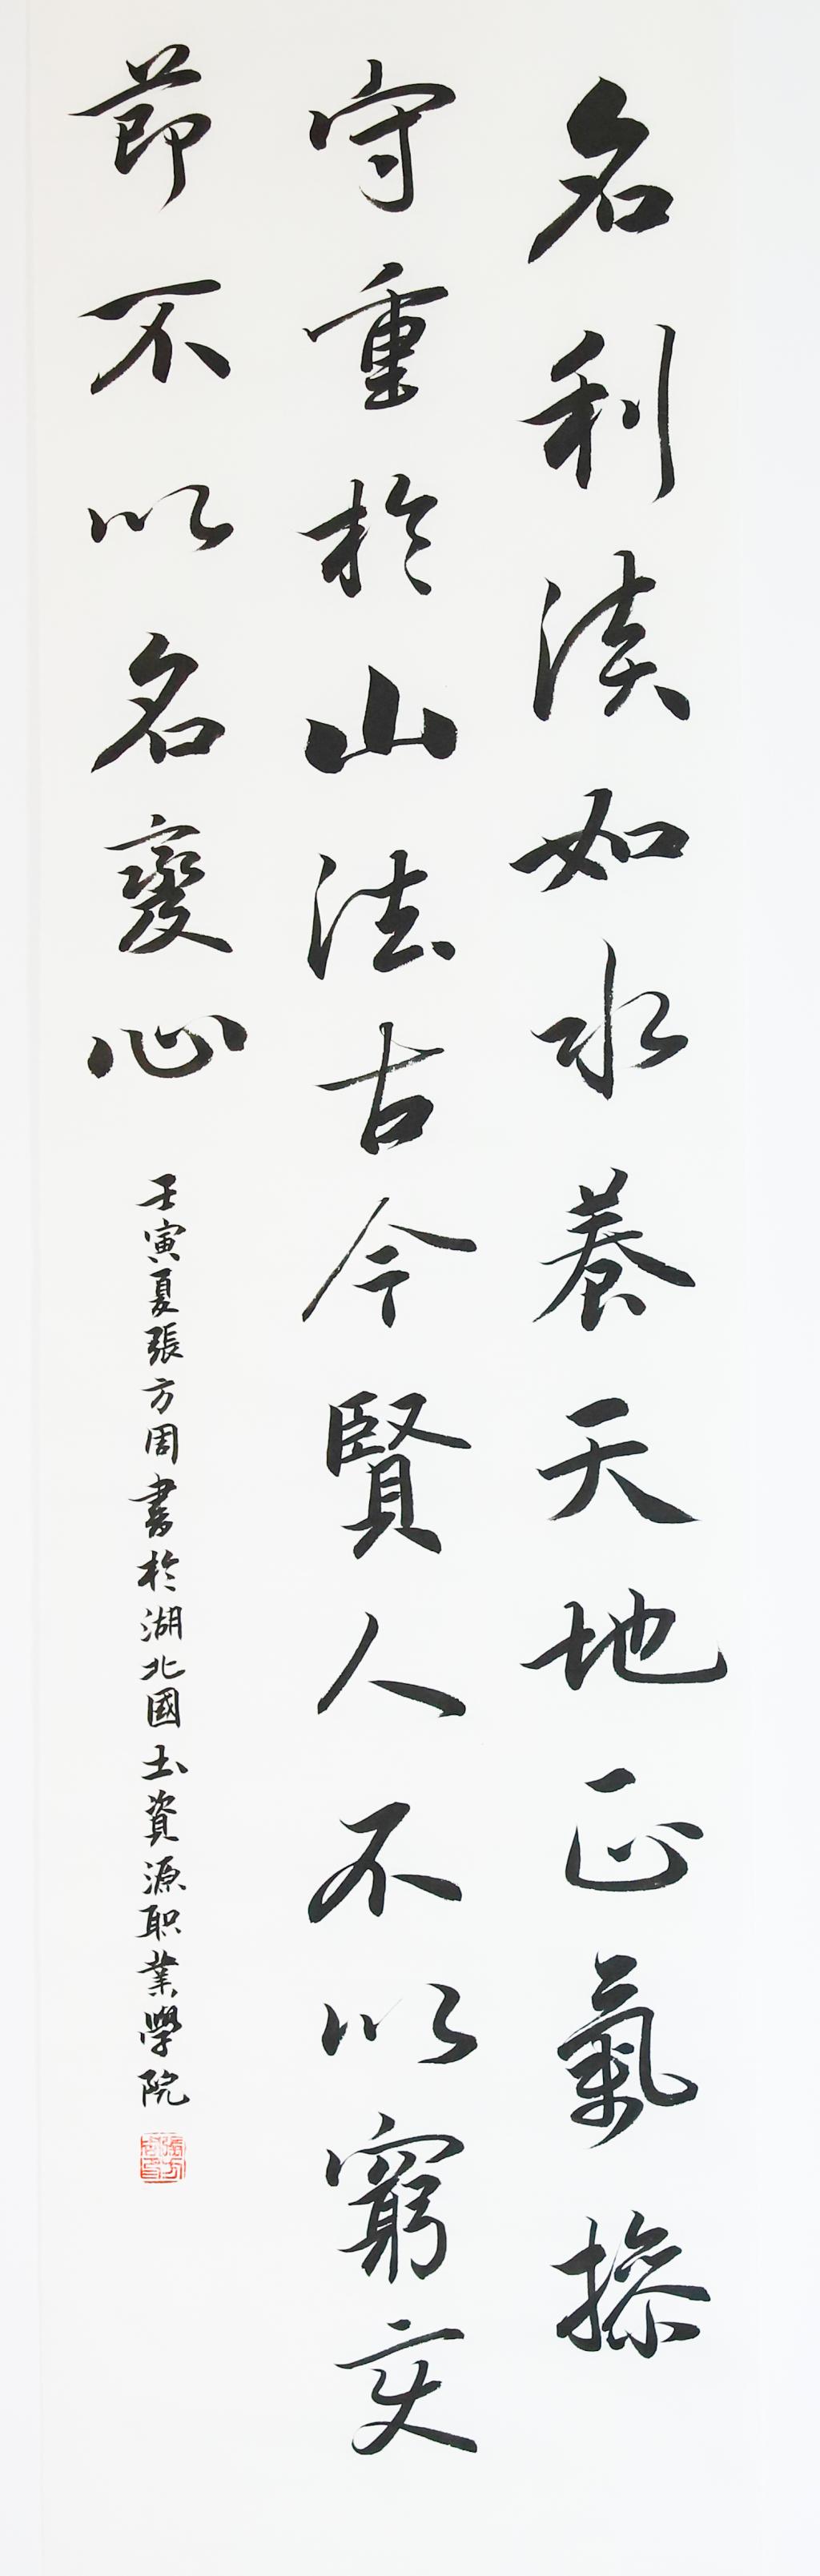 名利淡如水養天地正氣操
守重於山法古今賢人不以窮变
節不以名變心
壬寅夏張方周書於湖北國土資源职業學院